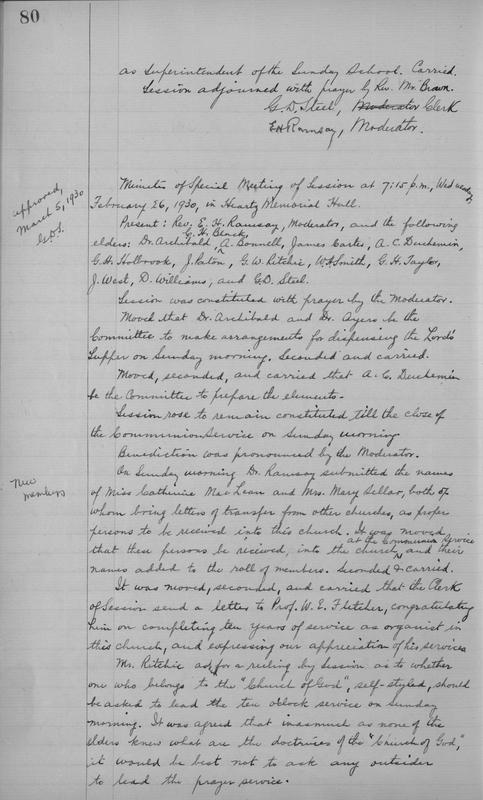 80
as Superintendent of the Sunday School. Carried.
Session adjourned with prayer by Rev. Mr. Brown.
G. D. Steel, Moderator Clerk
E H Ramsay, Moderator.
approved,
March 5, 1930
G.D.S.
Minutes of Special Meeting of Session at 7:15 p.m., Wednesday,
February 26, 1930, in Heartz Memorial Hall.
Present: Rev. E. H. Ramsay, Moderator, and the following
G. H. Black,
elders: Dr. Archibald, A. Bonnell, James Carter, A. C. Duchemin,
G. H. Holbrook, J. Paton, G. W. Ritchie, W. A. Smith, G. H. Taylor,
J. West, D. Williams, and G. D. Steel.
Session was constituted with prayer by the Moderator.
Moved that Dr. Archibald and Dr. Ayers be the
Committee to make arrangements for dispensing the Lord's
Supper on Sunday morning. Seconded and carried.
Moved, seconded, and carried that A. C. Duchemin
be the Committee to prepare the elements.
Session rose to remain constituted till the close of
the Communion Service on Sunday morning
Benediction was pronounced by the Moderator.
New
members
On Sunday morning Dr. Ramsay submitted the names
of Miss Catherine MacLean and Mrs. Mary Sellar, both of
whom bring letters of transfer from other churches, as proper
persons to be received into this church. It was moved
at the Communion Service
that these persons be received, into the church, and their
names added to the roll of members. Seconded & carried.
It was moved, seconded, and carried that the Clerk
of Session send a letter to Prof. W. E. Fletcher, congratulating
him on completing ten years of service as organist in
this church, and expressing our appreciation of his services
Mr. Ritchie ask for a ruling by Session as to whether
one who belongs to the "Church of God", self-styled, should
be asked to lead the ten o'clock service on Sunday
morning. It was agreed that inasmuch as none of the
elders knew what are the doctrines of the "Church of God,"
it would be best not to ask any outsider
to lead the prayer service.